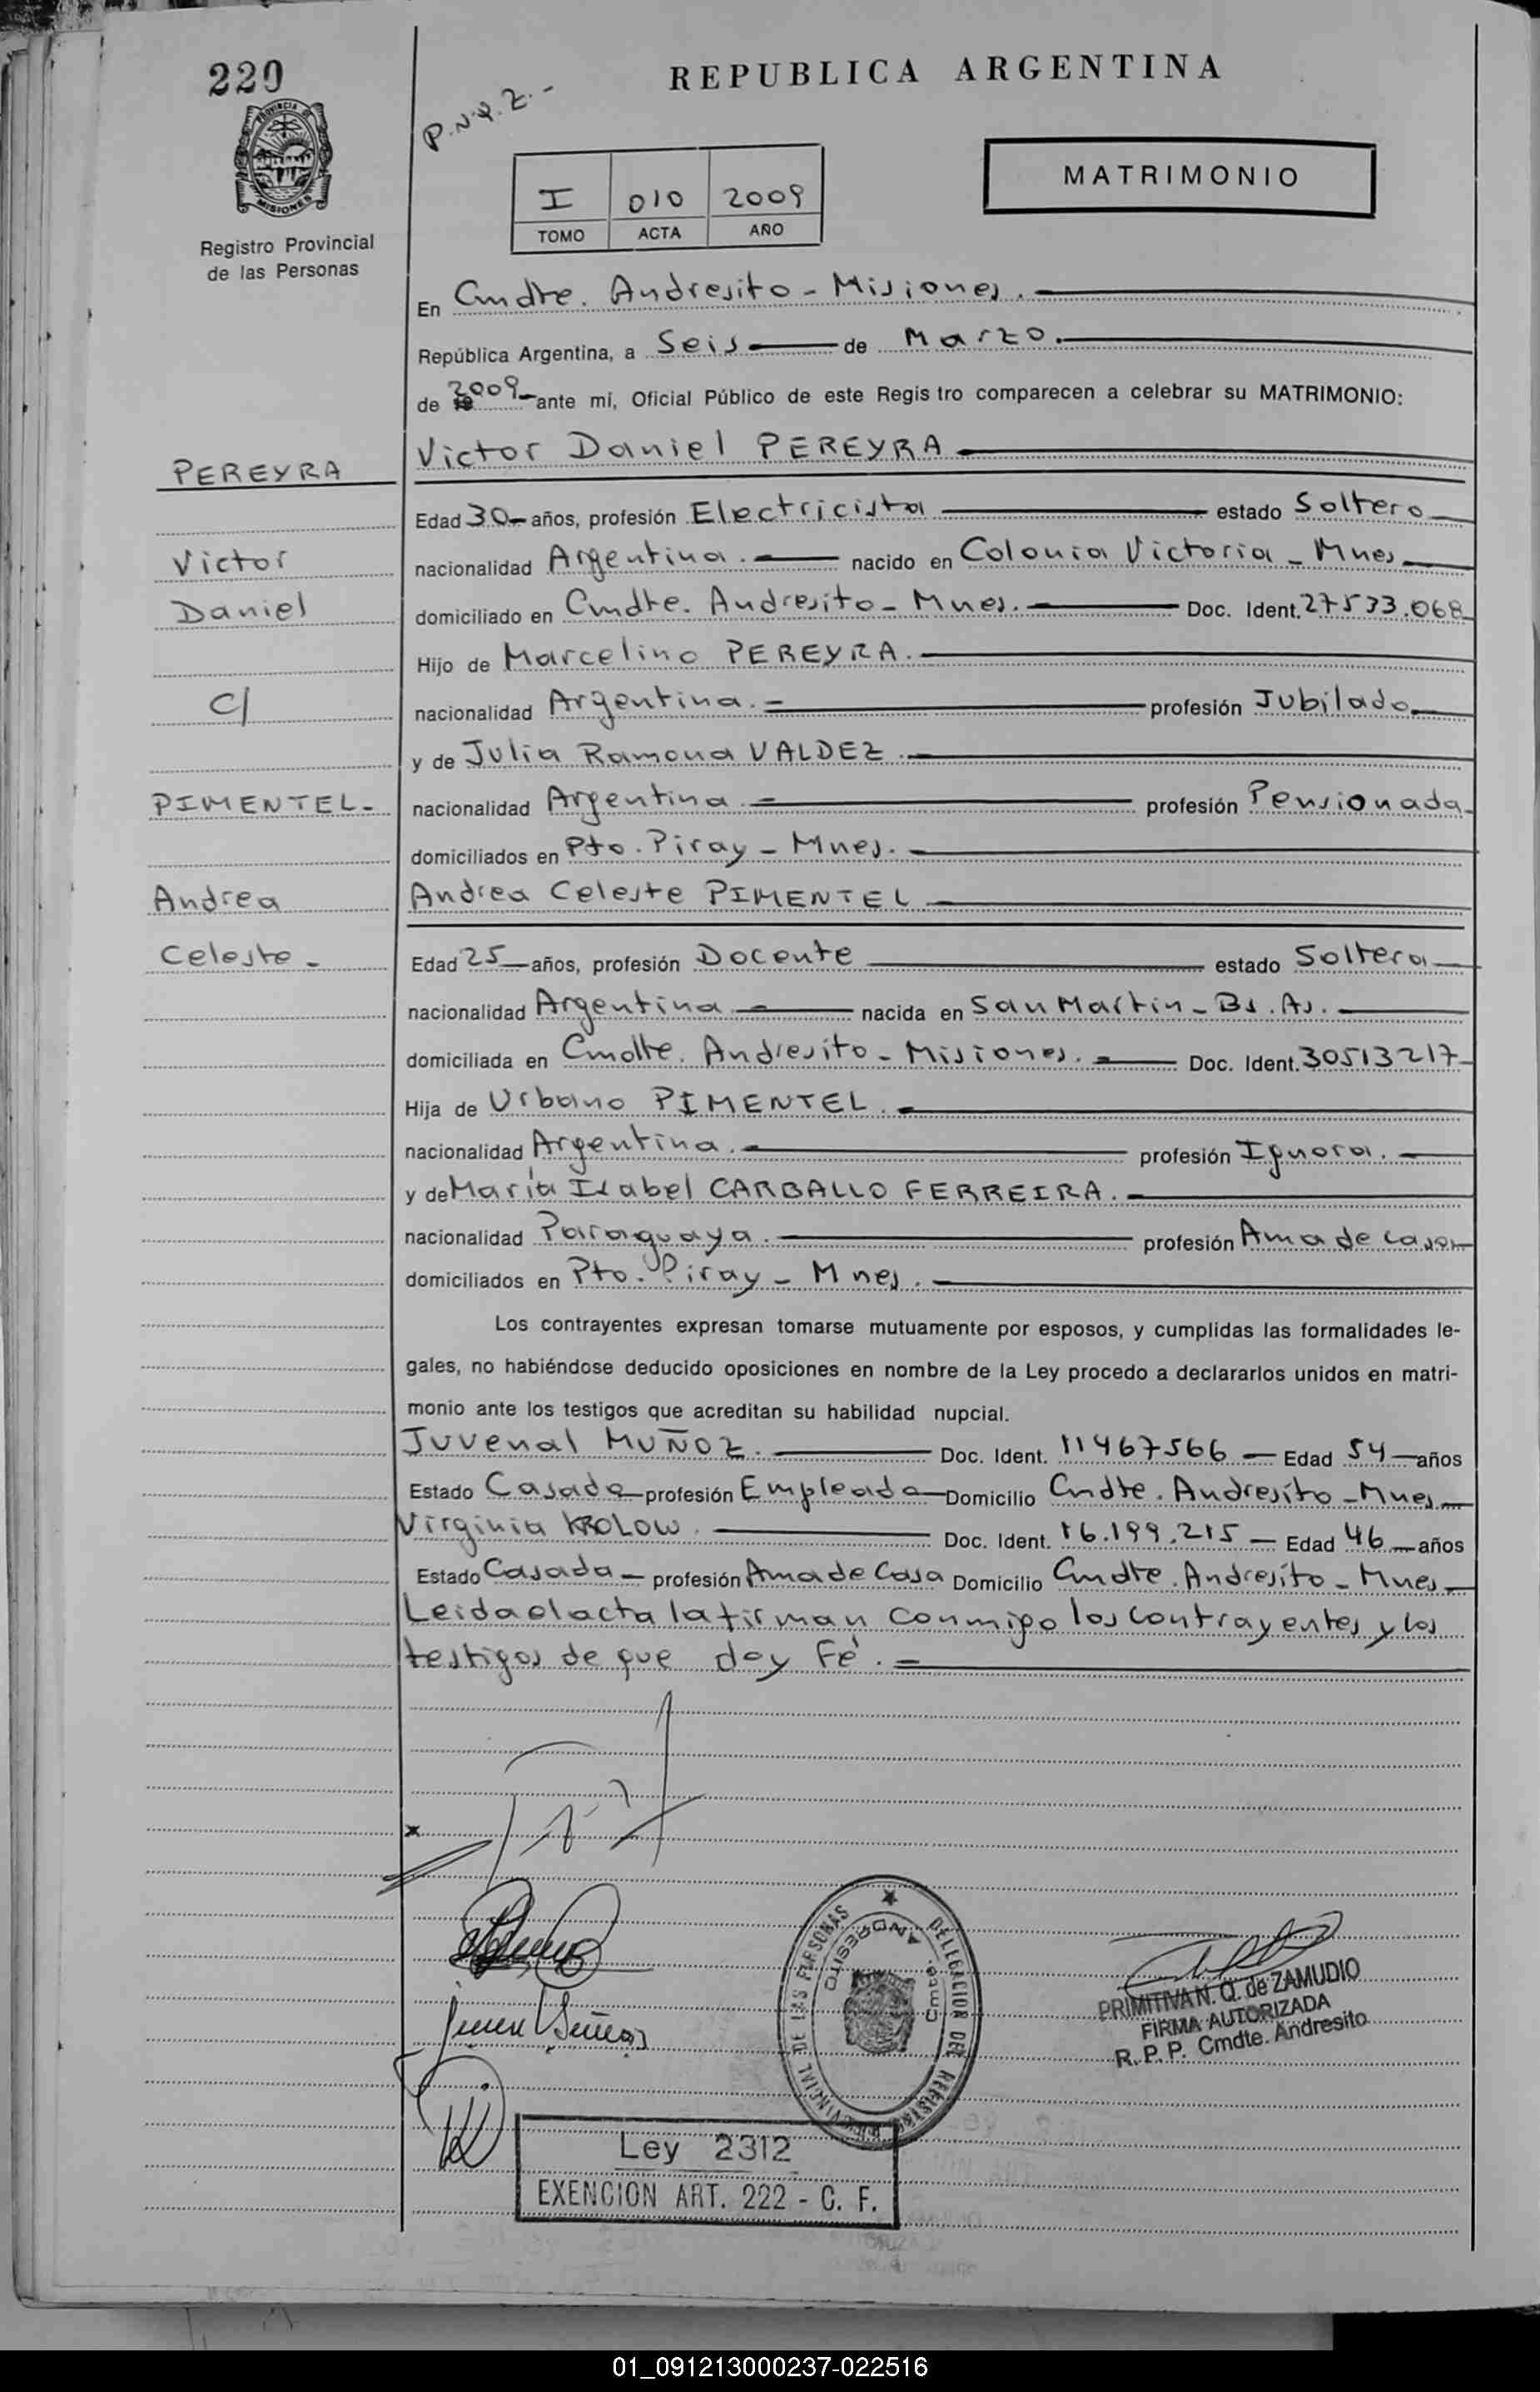 220
REPUBLICA ARGENTINA
P.N.Q.Z.-
MATRIMONIO
I 010 2009
TOMO ACTA AÑO
PROVINCIA DE
MISIONES
Registro Provincial
de las Personas
En Cmdte. Andresito - Misiones.
República Argentina, a Seis de Marzo.
de 19 2009 ante mí, Oficial Público de este Regis tro comparecen a celebrar su MATRIMONIO:
PEREYRA
Victor Daniel PEREYRA
Edad 30 años, profesión Electricista estado Soltero
Victor
nacionalidad Argentina. nacido en Colonia Victoria - Mnes
Daniel
domiciliado en Cmdte. Andresito - Mnes. Doc. Ident. 27533.068
Hijo de Marcelino PEREYRA.
C/
nacionalidad Argentina. profesión Jubilado
y de Julia Ramona VALDEZ.
PIMENTEL-
nacionalidad Argentina. profesión Pensionada
domiciliados en Pto. Piray - Mnes.
Andrea
Andrea Celeste PIMENTEL
Celeste -
Edad 25 años, profesión Docente estado Soltera
nacionalidad Argentina nacida en San Martin - Bs. As.
domiciliada en Cmdte. Andresito - Misiones. Doc. Ident. 30513217
Hija de Urbano PIMENTEL.
nacionalidad Argentina. profesión Ignora.
y de María Isabel CARBALLO FERREIRA.
nacionalidad Paraguaya. profesión Ama de casa
domiciliados en Pto. Piray - Mnes.
Los contrayentes expresan tomarse mutuamente por esposos, y cumplidas las formalidades le-
gales, no habiéndose deducido oposiciones en nombre de la Ley procedo a declararlos unidos en matri-
monio ante los testigos que acreditan su habilidad nupcial.
Juvenal MUÑOZ. Doc. Ident. 11467566 Edad 54 años
Estado Casado profesión Empleado Domicilio Cmdte. Andresito - Mnes
Virginia KROLOW. Doc. Ident. 16.199.215 Edad 46 años
Estado Casada profesión Ama de Casa Domicilio Cmdte. Andresito - Mnes
Leida el acta la firman conmigo los contrayentes y los
testigos de que doy Fé.
DELEGACION DEL REGISTRO PROVINCIAL DE LAS PERSONAS
Cmte. ANDRESITO
PRIMITIVA N. Q. de ZAMUDIO
FIRMA AUTORIZADA
R. P. P. Cmdte. Andresito
Ley 2312
EXENCION ART. 222 - C. F.
01_091213000237-022516